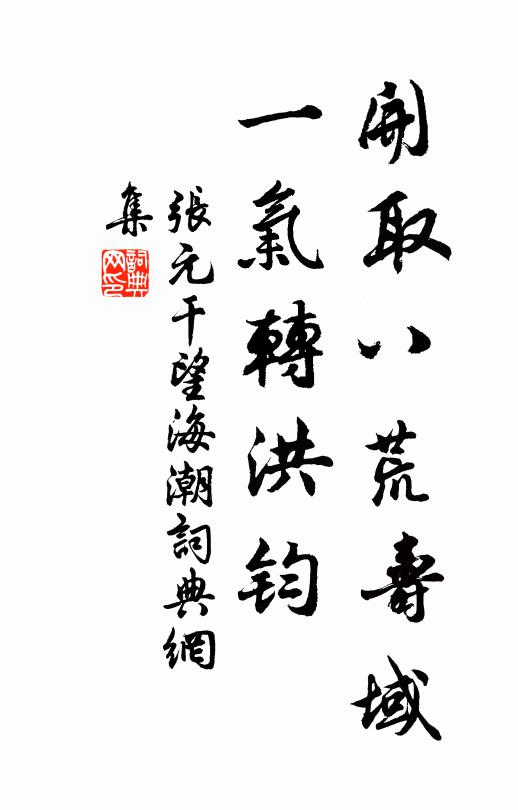 開取八荒壽域
一氣轉洪鈞
張元干望海潮詞典網
集
詞典
网印